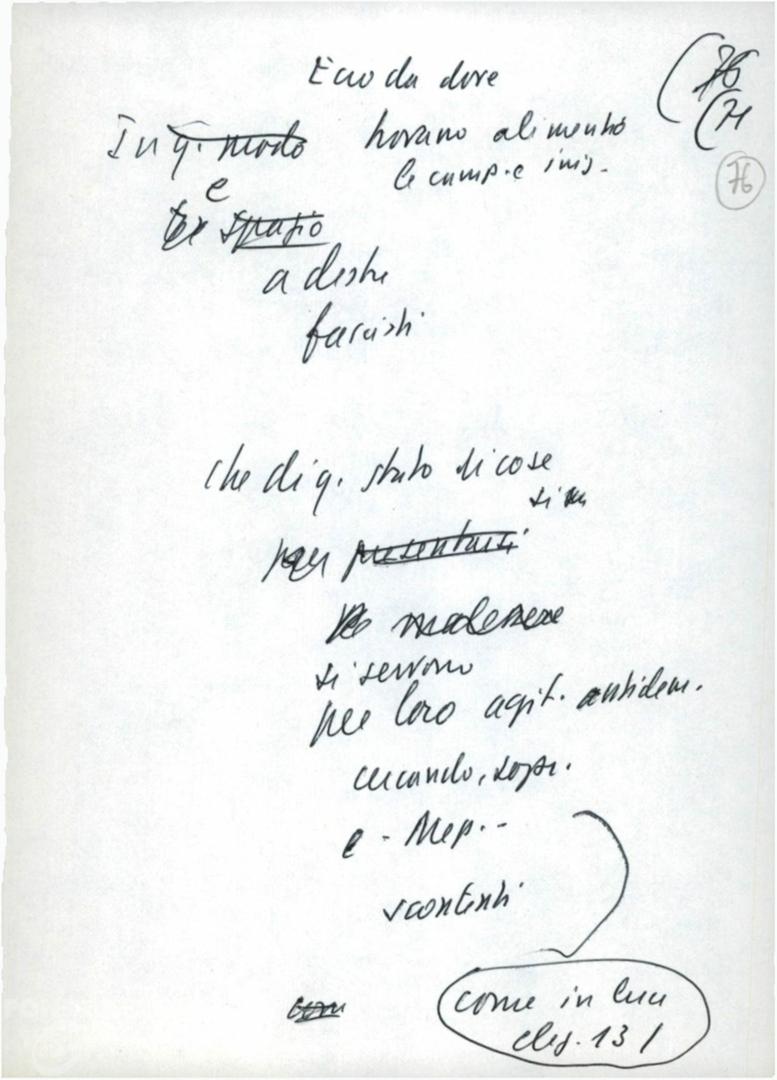 Ecco da dove
(76
(71
76
In q. modo trovano alimento
le camp. e iniz.
e
spazio
a destre
fascisti
Che di q. stato di cose
si
per presentarsi
si servono
per loro agit. antidem.
cercando, sopr.
e - Mep. -
scontenti
come in
13 /